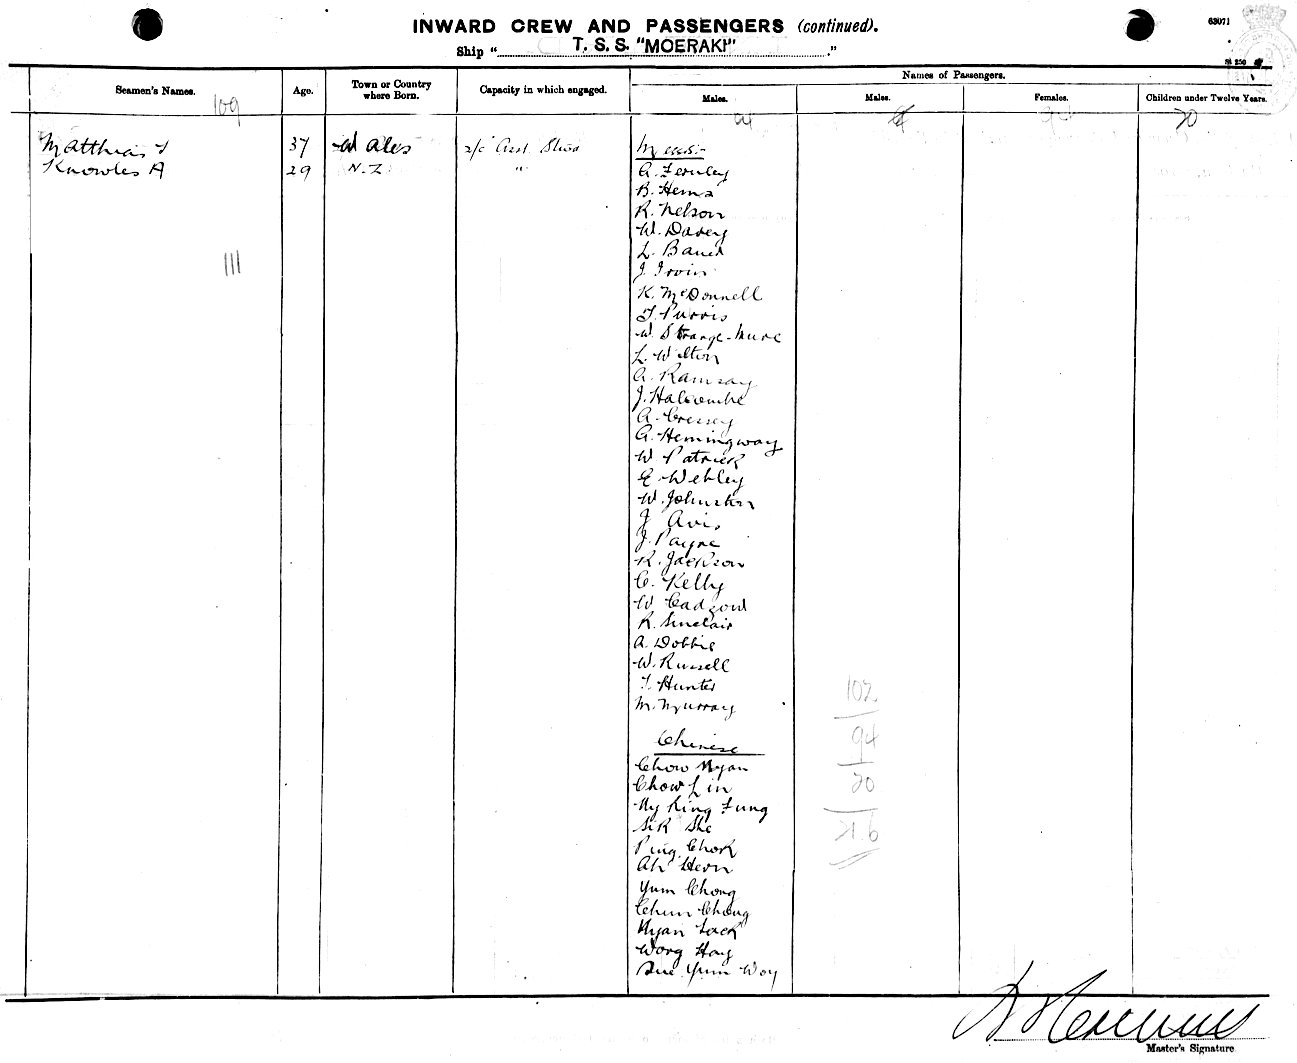 INWARD CREW AND PASSENGERS (continued).
63071
Ship " T. S. S. "MOERAKI" "
Seamen's Names.
Age.
Town or Country where Born.
Capacity in which engaged.
Names of Passengers.
Males.
Males.
Females.
Children under Twelve Years.
109
20
Matthias T 37 Wales 2/c Asst Stwd
Knowles A 29 N.Z. "
111
Messrs:-
A. Fernley
B. Hems
R. Nelson
W. Davey
L. Bauer
J. Irvin
K. McDonnell
T. Purvis
W. Strange-Mure
L. Wilton
A. Ramsay
J. Halcombe
A. Cressey
A. Hemingway
W Patrick
E. Webley
W. Johnston
J Avis
J. Payne
R. Jackson
C. Kelly
W Cadzow
R. Sinclair
A. Dobbie
W. Russell
T. Hunter
M. Murray
102
94
20
Chinese
Chow Nyan
Chow Lin
Ny King Fung
Sik She
Ping Chok
Ah Heon
Yum Chong
Chun Chong
Nyan Lock
Wong Hoy
Sue Yum Woy
Master's Signature